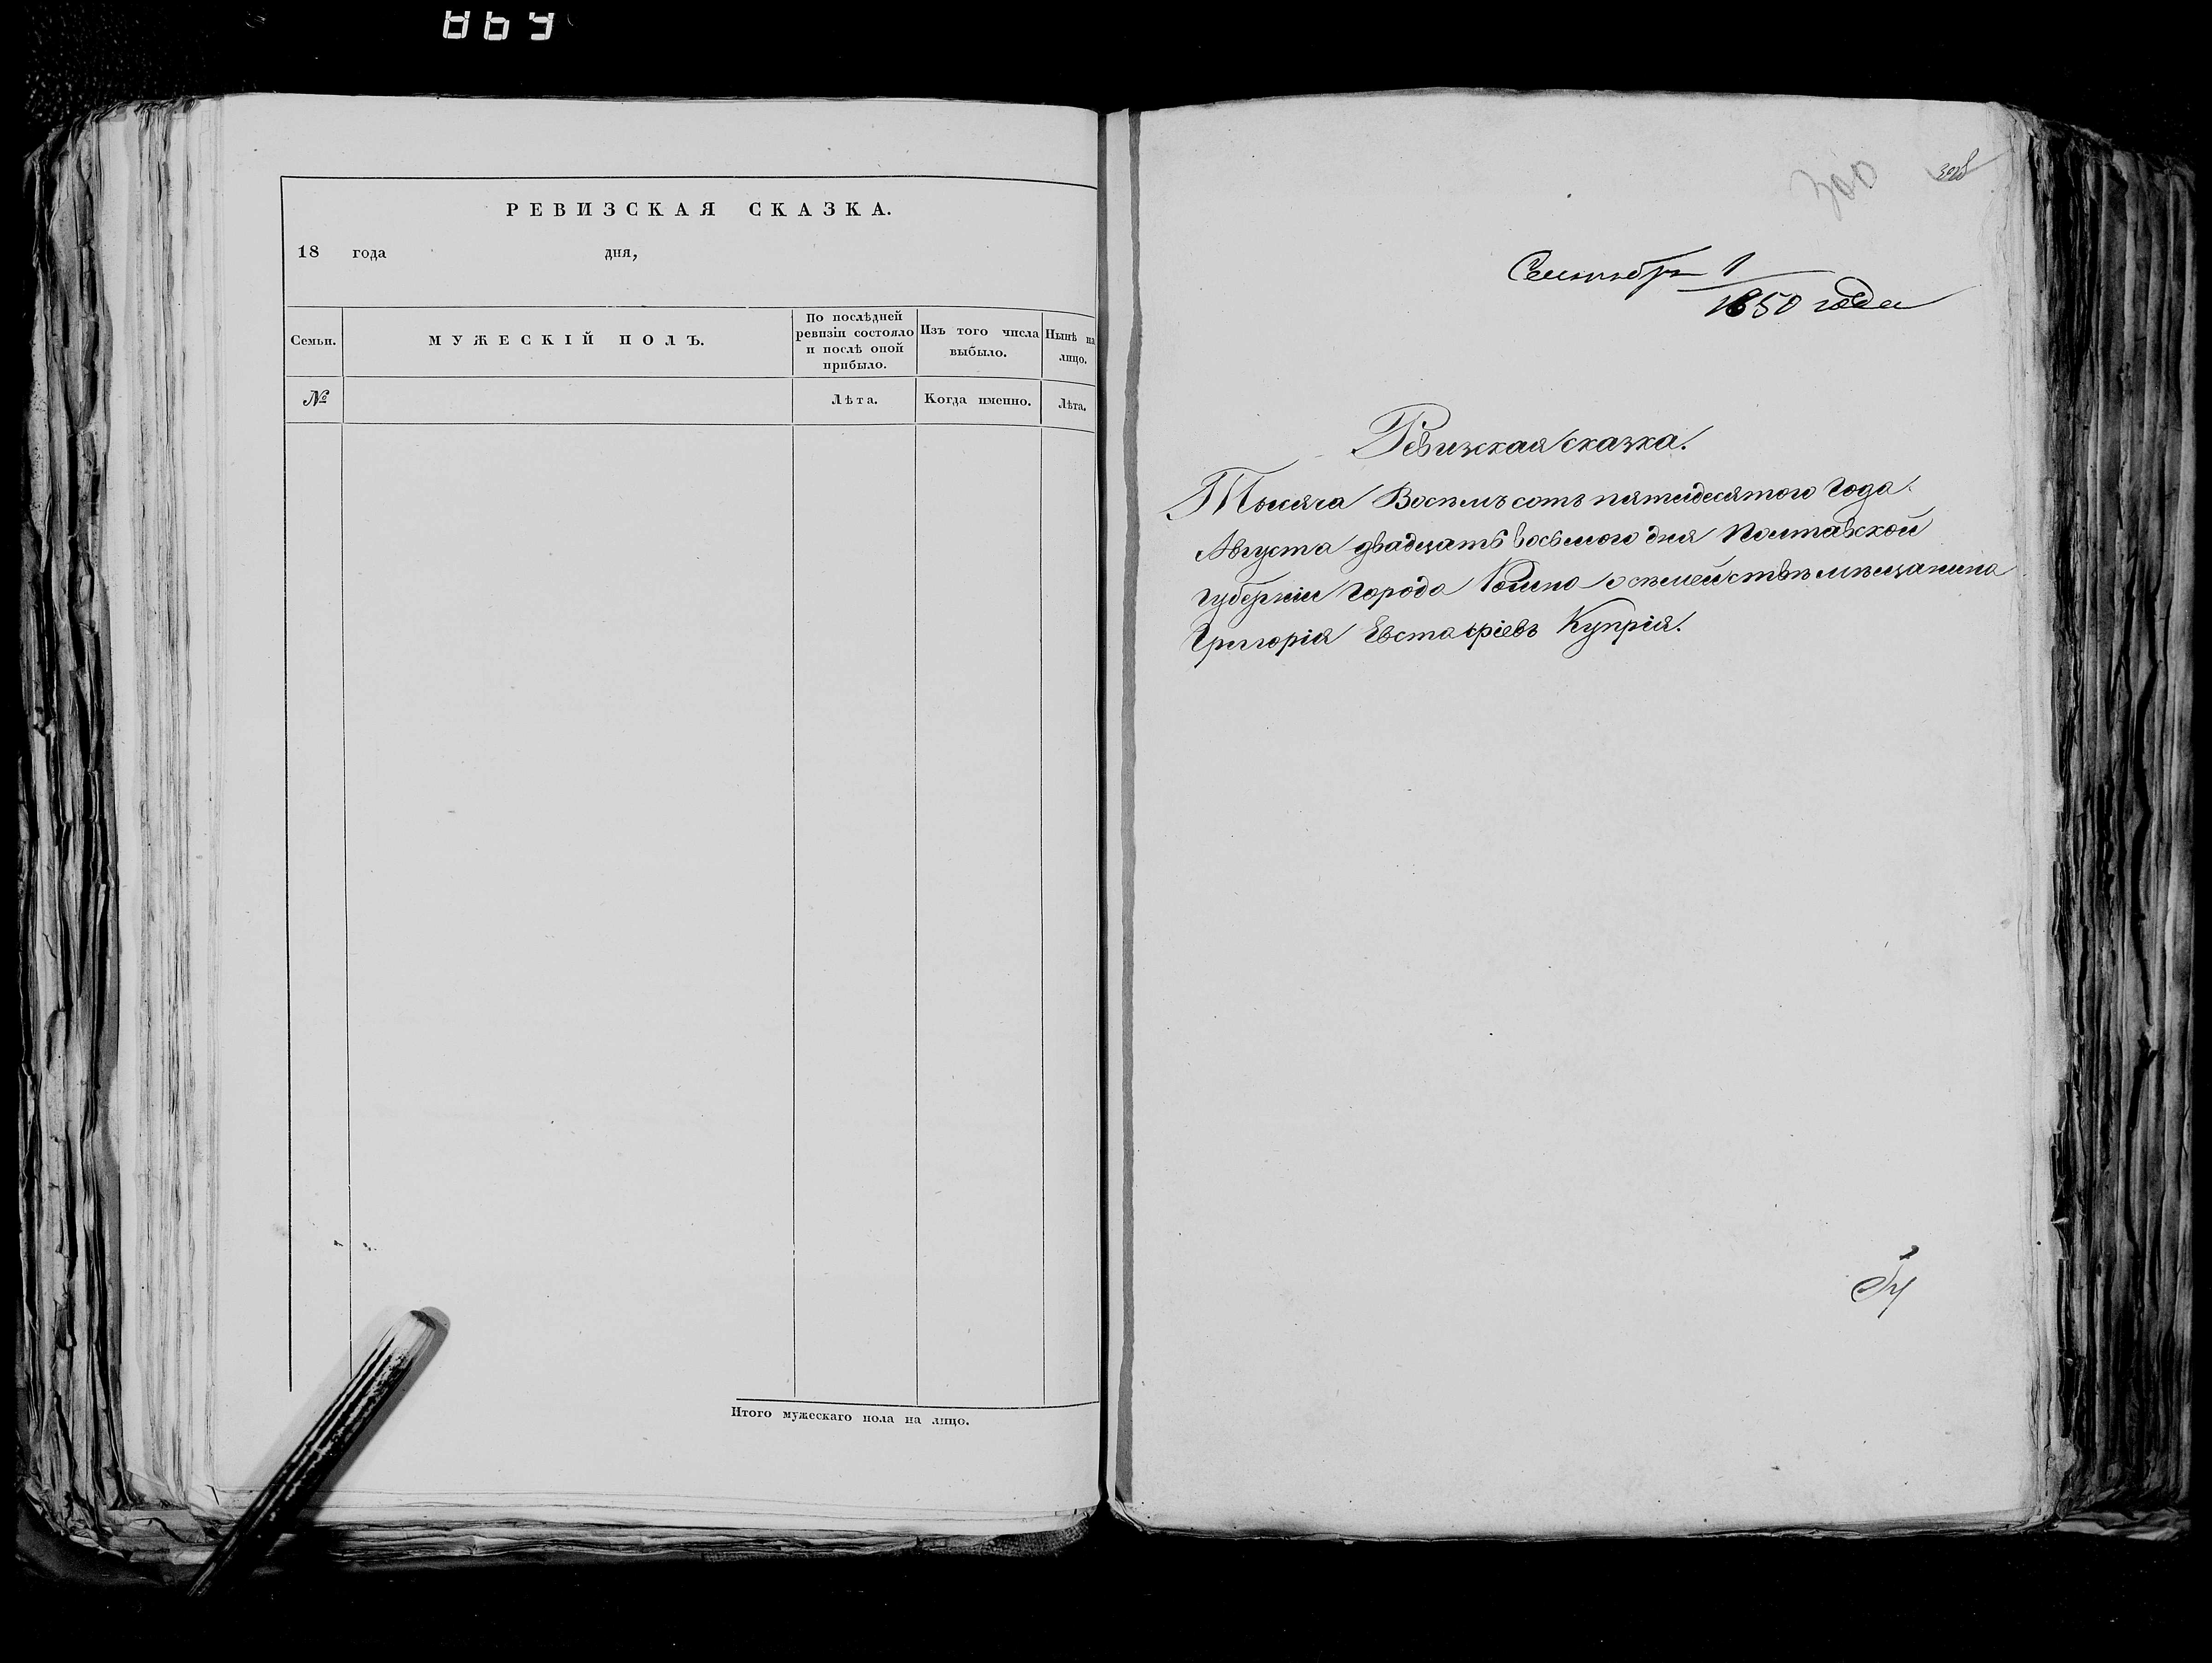 РЕВИЗСКАЯ СКАЗКА.
18 года дня,
Семьи.
МУЖЕСКІЙ ПОЛЪ.
По послѣдней
ревизіи состояло
и послѣ оной
прибыло.
Изъ того числа
выбыло.
Нынѣ на
лицо.
№
Лѣта.
Когда именно.
Лѣта.
Итого мужескаго пола на лицо.
300
Сентября 1
1850 года
Ревизская сказка.
Тысяча Восемьсотъ пятидесятого Года.
Августа двадцать восьмого дня Полтавской
Губерніи Города о семействѣ мѣщанина
Григорія Евстафіевъ Купрія.